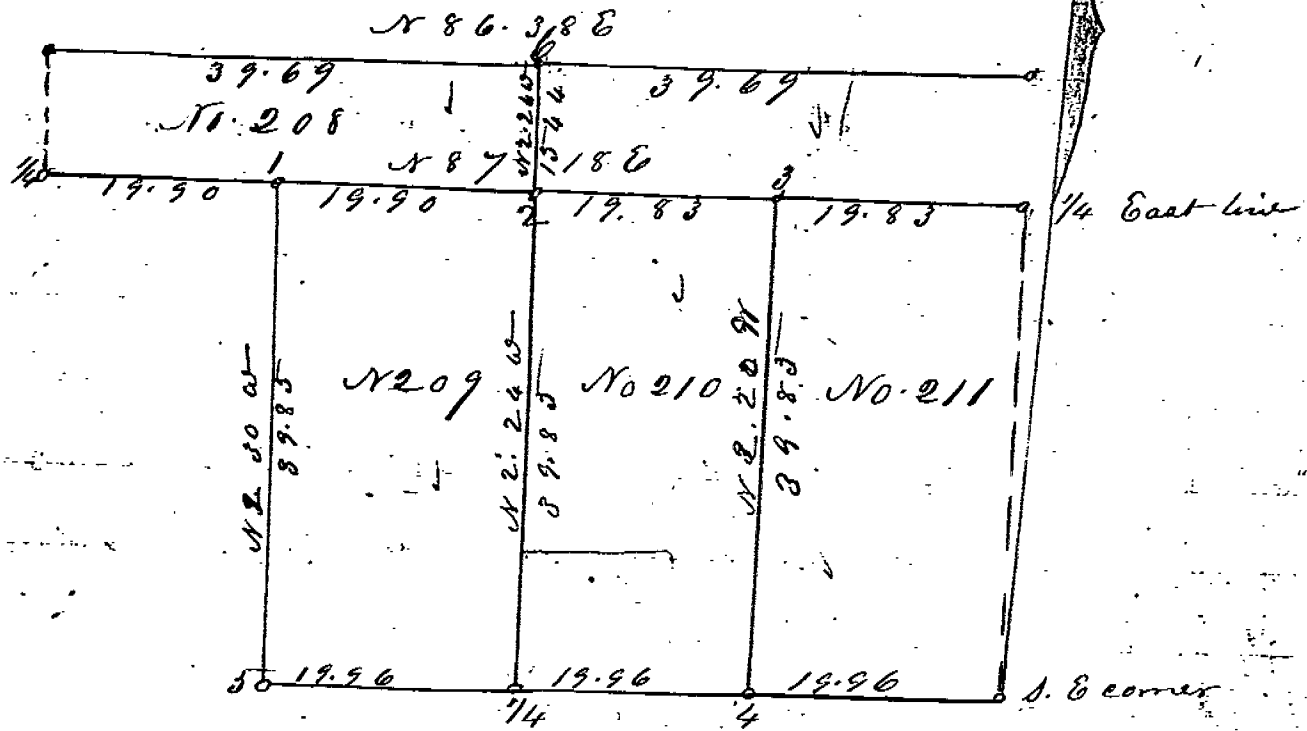 N 86.38 E
39.69
39.69
N 2.26 W
15.44
No. 208
1/4
1
N 87.18 E
3
19.90
19.90
2
19.83
19.83
1/4 East line
N 2 30 W
39.85
N 209
N 2.24 W
39.85
No 210
N 2.20 W
39.83
No. 211
5
19.96
19.96
19.96
S. E corner
1/4
4